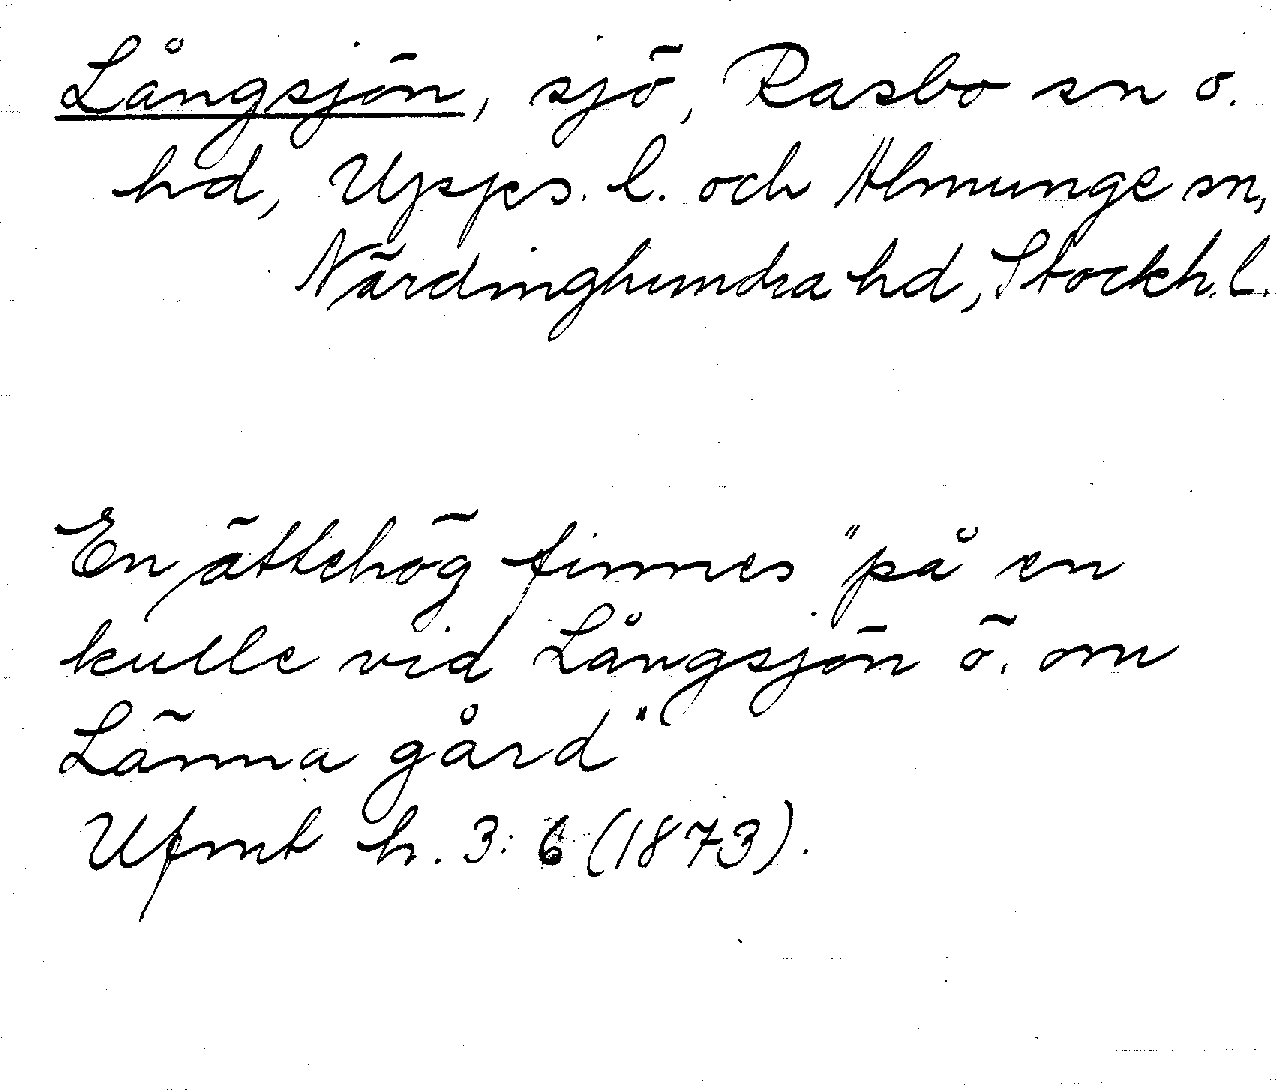 Långsjön, sjö, Rasbo sn o.
hd, Upps. l. och Almunge sn,
Närdinghundra hd, Stockh. l.
En ättehög finnes "på en
kulle vid Långsjön ö. om
Länna gård"
Ufmt h. 3: 6 (1873).